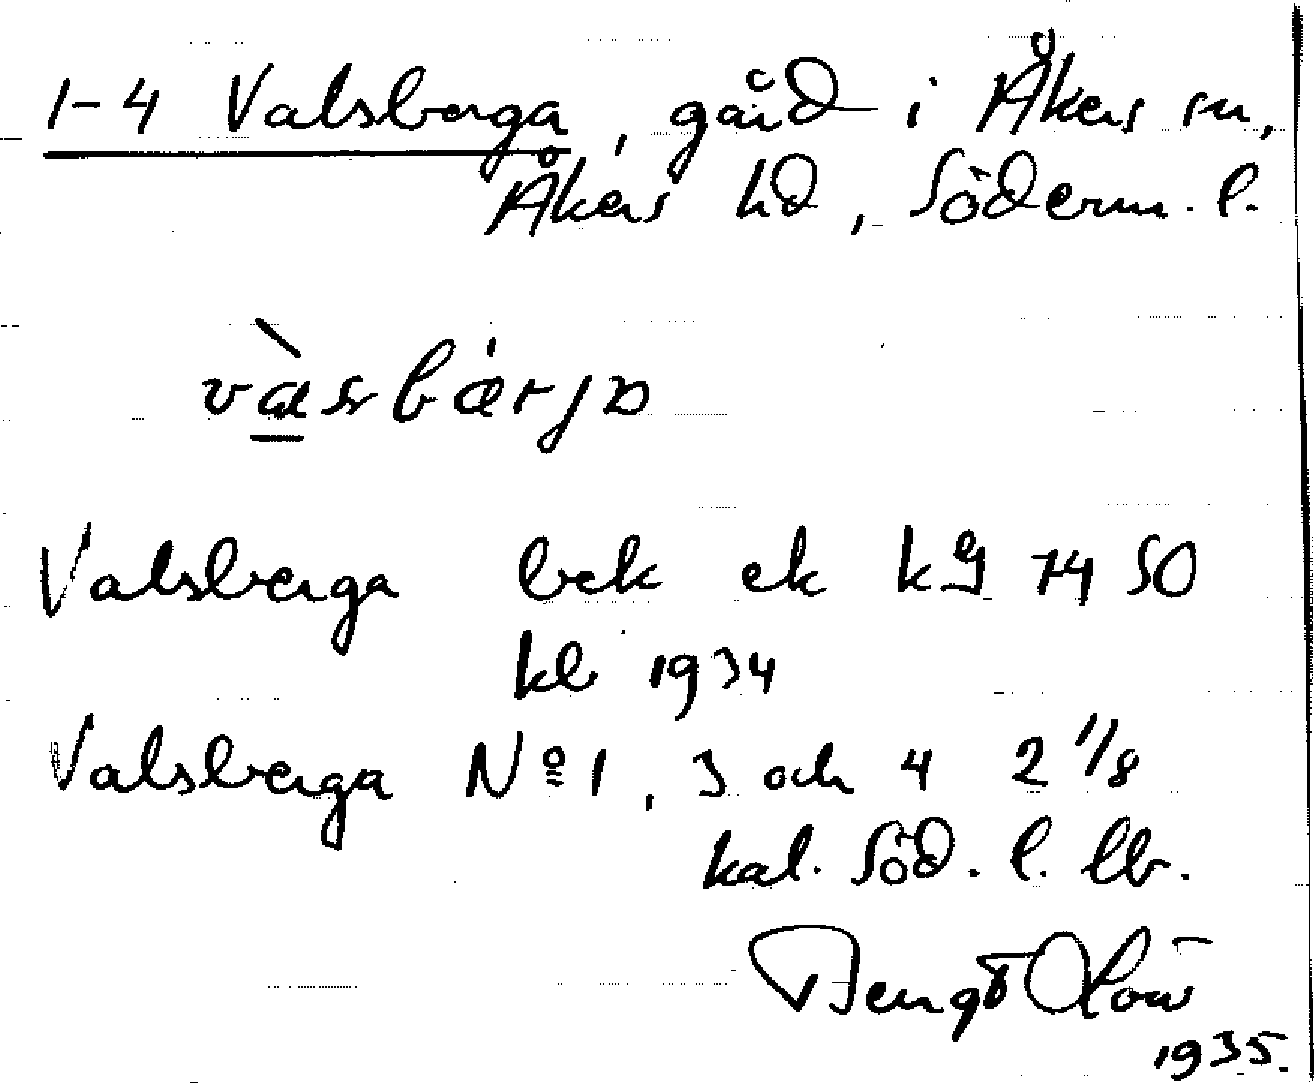 1-4 Valsberga, gård i Åkers sn,
Åkers hd, Söderm. l.
Valsberga bek ek kg 74 50
kl 1934
Valsberga Nº 1, 3 och 4 2 1/8
kal. Söd. l. lb.
Bengt Olow
1935.